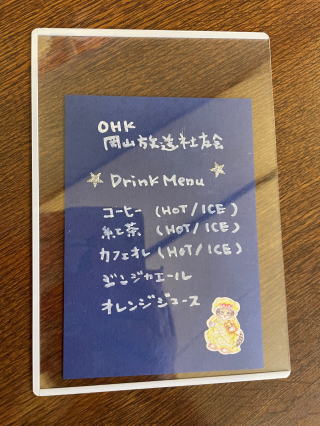 OHK
岡山放送社友会
Drink Menu
コーヒー (HOT/ICE)
紅茶 (HOT/ICE)
カフェオレ (HOT/ICE)
ジンジャエール
オレンジジュース